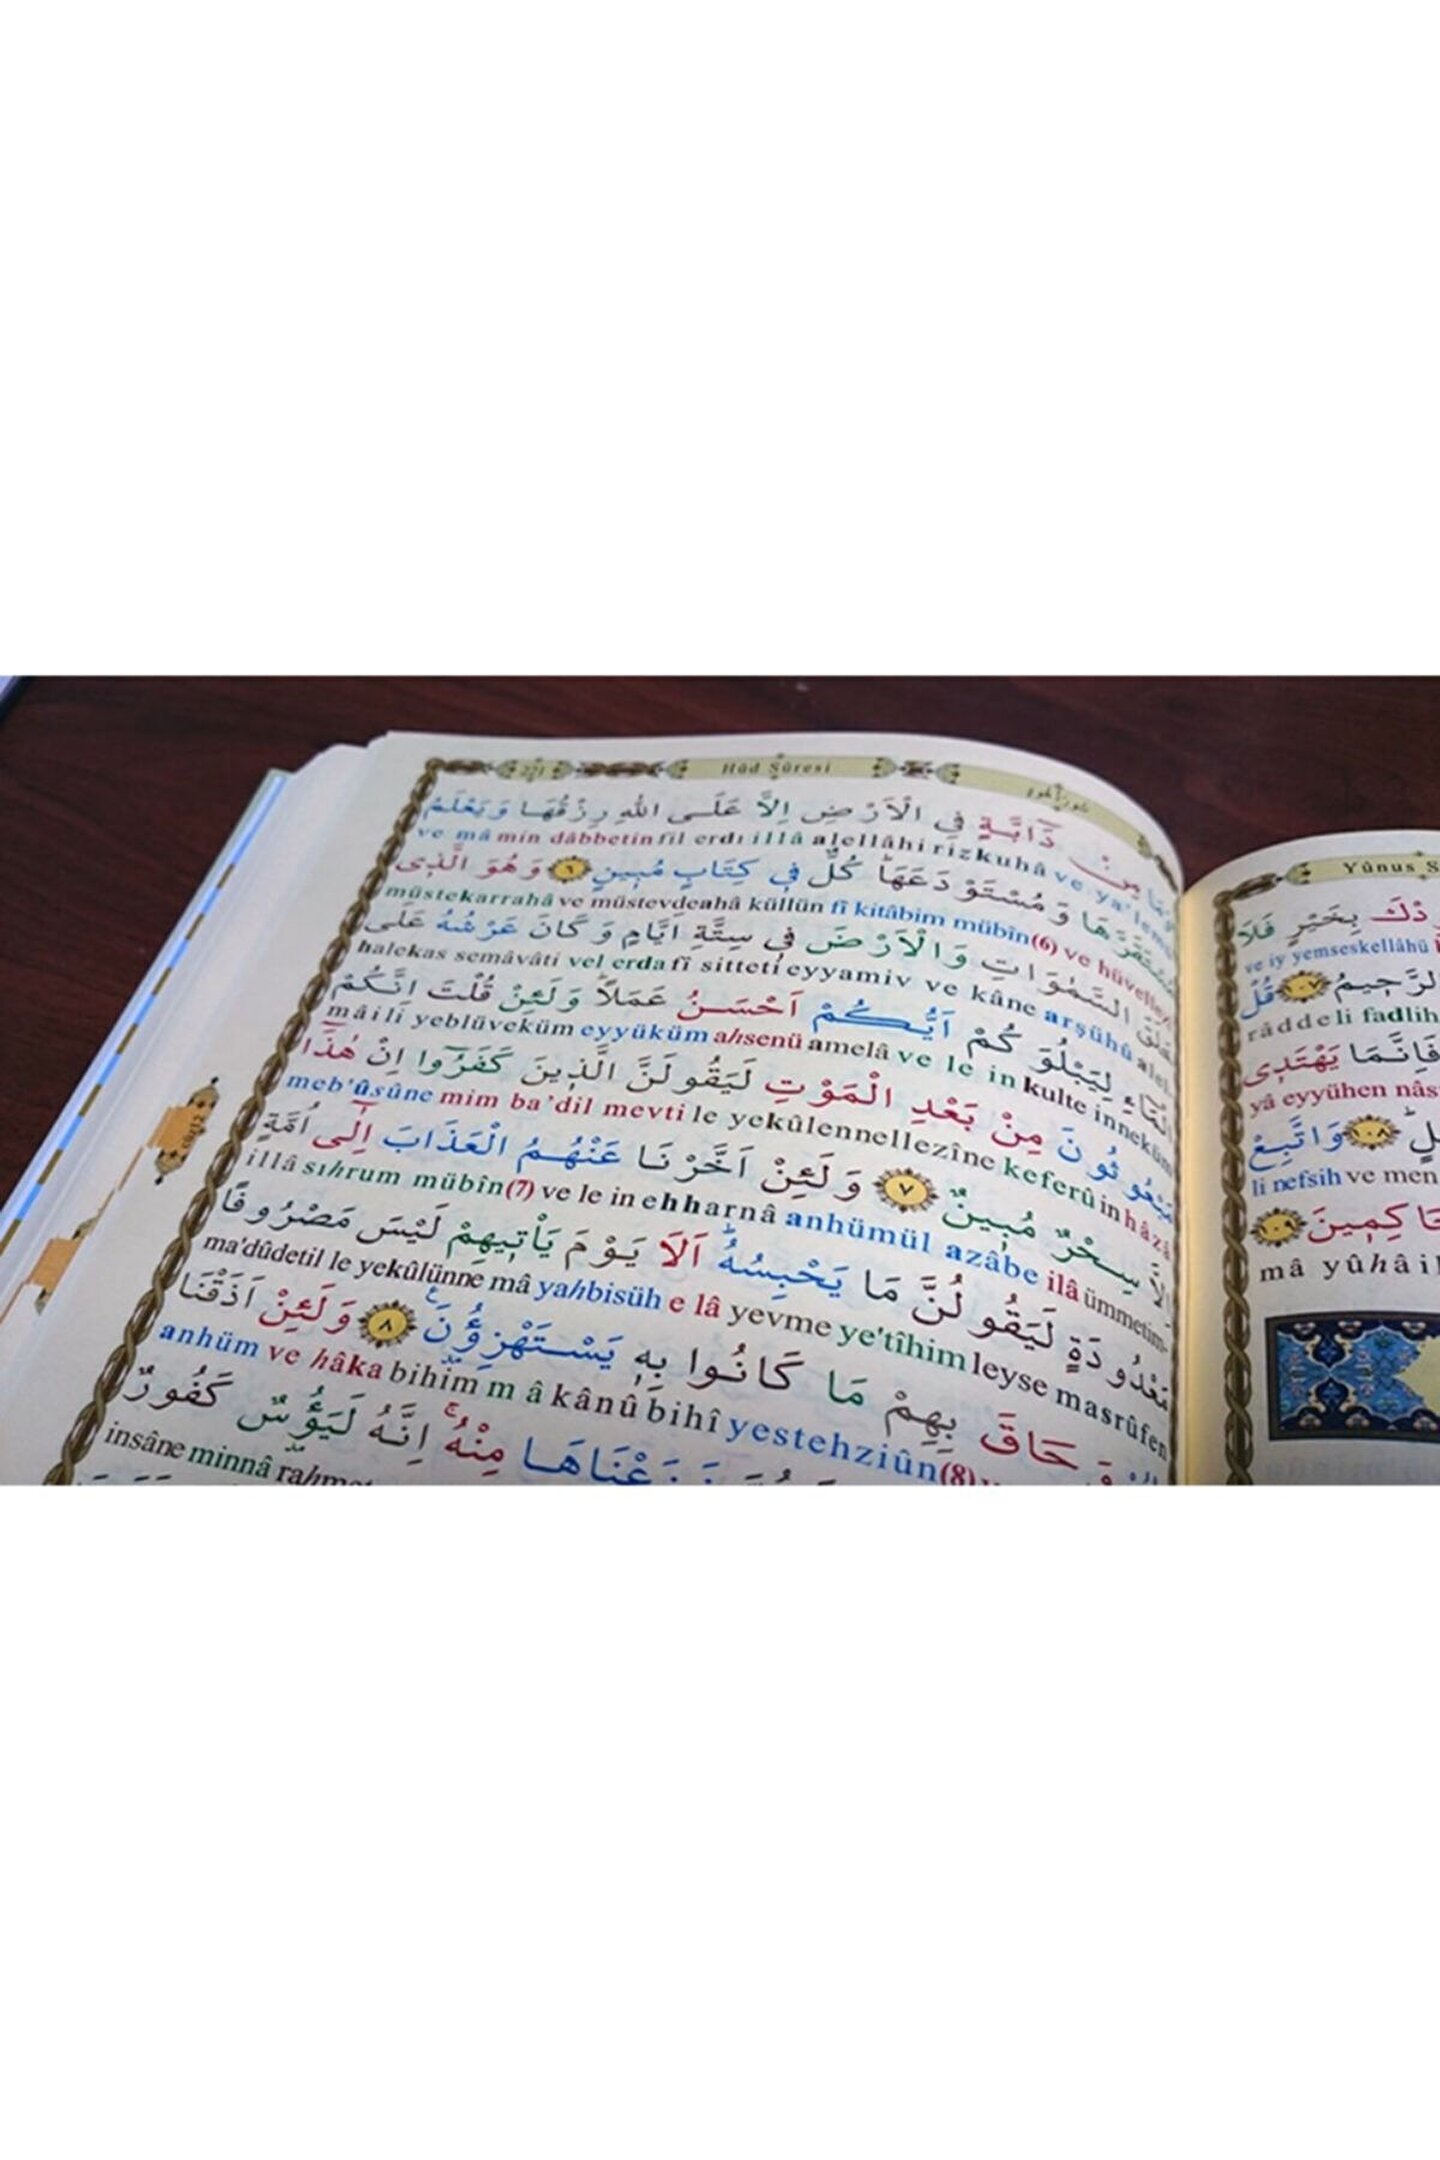 Hûd Sûresi
مِنْ دَٓابَّةٍ فِي الْاَرْضِ اِلَّا عَلَى اللّٰهِ رِزْقُهَا وَيَعْلَمُ
ve mâ min dâbbetin fil erdı illâ alellâhi rizkuhâ ve ya'lemü
مُسْتَقَرَّهَا وَمُسْتَوْدَعَهَاۜ كُلٌّ فٖي كِتَابٍ مُبٖينٍ ٦ وَهُوَ الَّذٖي
müstekarrahâ ve müstevdeahâ küllün fî kitâbim mübîn(6) ve hüvellezî
خَلَقَ السَّمٰوَاتِ وَالْاَرْضَ فٖي سِتَّةِ اَيَّامٍ وَكَانَ عَرْشُهُ عَلَى
halekas semâvâti vel erda fî sitteti eyyamiv ve kâne arşühû alel
الْمَٓاءِ لِيَبْلُوَكُمْ اَيُّكُمْ اَحْسَنُ عَمَلًاۜ وَلَئِنْ قُلْتَ اِنَّكُمْ
mâi li yeblüveküm eyyüküm ahsenü amelâ ve le in kulte inneküm
مَبْعُوثُونَ مِنْ بَعْدِ الْمَوْتِ لَيَقُولَنَّ الَّذٖينَ كَفَرُٓوا اِنْ هٰذَٓا
meb'ûsûne mim ba'dil mevti le yekûlennellezîne keferû in hâzâ
اِلَّا سِحْرٌ مُبٖينٌ ٧ وَلَئِنْ اَخَّرْنَا عَنْهُمُ الْعَذَابَ اِلٰٓى اُمَّةٍ
illâ sıhrum mübîn(7) ve le in ehharnâ anhümül azâbe ilâ ümmetim-
مَعْدُودَةٍ لَيَقُولُنَّ مَا يَحْبِسُهُۜ اَلَا يَوْمَ يَأْتٖيهِمْ لَيْسَ مَصْرُوفًا
ma'dûdetil le yekûlünne mâ yahbisüh e lâ yevme ye'tîhim leyse masrûfen
حَاقَ بِهِمْ مَا كَانُوا بِهٖ يَسْتَهْزِؤُ۫نَ ٨ وَلَئِنْ اَذَقْنَا
anhüm ve hâka bihim mâ kânû bihî yestehziûn(8)
مِنْهُۚ اِنَّهُ لَيَؤُ۫سٌ كَفُورٌ
insâne minnâ
Yûnus
بِخَيْرٍ فَلَا
ve iy yemseskellâhü
الرَّحٖيمُ ١٠٧ قُلْ
râdde li fadlih
فَاِنَّمَا يَهْتَدٖي
yâ eyyühen nâs
١٠٨ وَاتَّبِعْ
li nefsih ve men
١٠٩
mâ yûhâ il